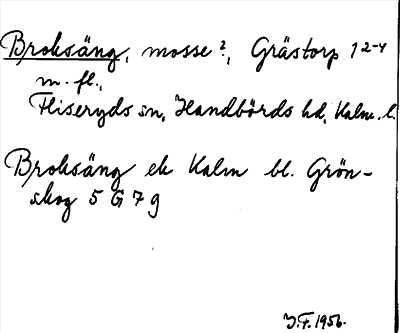 Broksäng, mosse?, Grästorp 1 2-4
m. fl.,
Fliseryds sn, Handbörds hd, Kalm. l.
Broksäng ek Kalm bl. Grön-
skog 5 G 7 g
J.F. 1956.